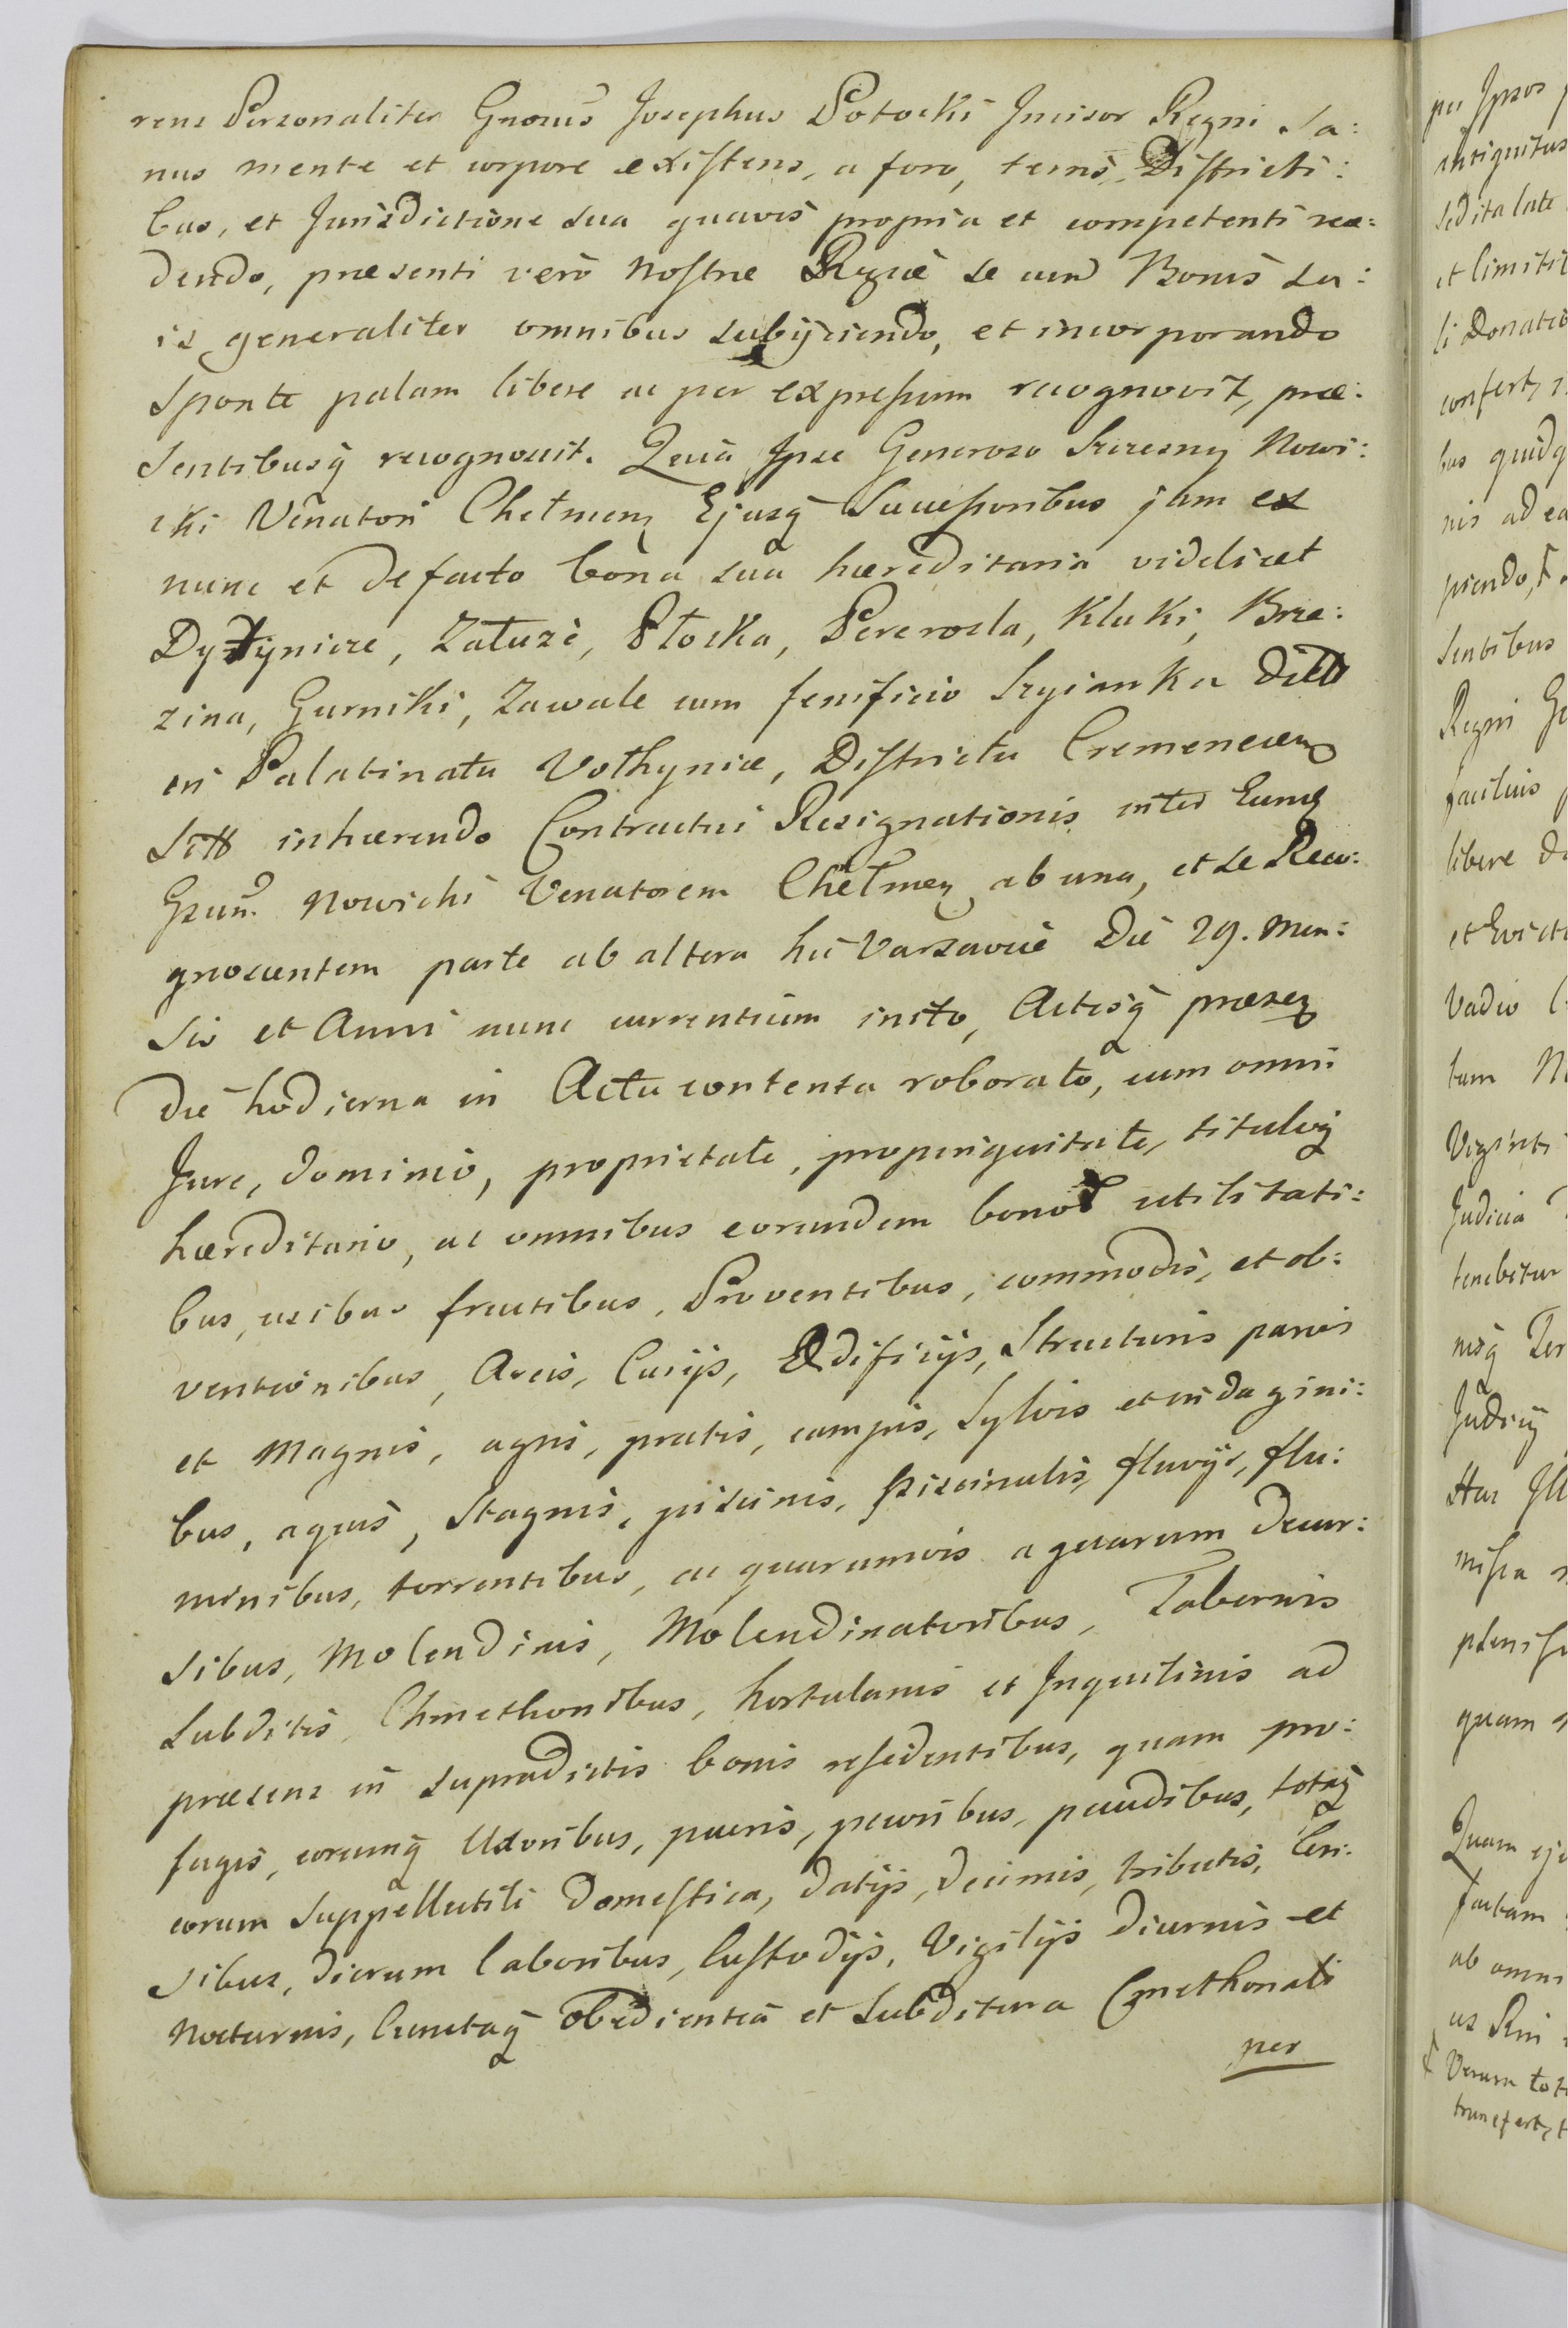 rens Personaliter Gnosus Josephus Potocki Incisor Regni Sa:
nus mente et corpore existens, a foro, terris, Districti:
bus, et Jurisdictione sua quavis propria et competenti rece:
dendo, præsenti vero Nostræ Regiæ se cum Bonis su:
is generaliter omnibus subijciendo, et incorporando
Sponte palam libere ac per expressum recognovit, præ:
sentibusq recognoscit. Quia Ipse Generoso Szczesny Nowi:
cki Venatori Chełmen Ejusq Successoribus jam ex
nunc et de facto bona sua hæreditaria videlicet
Dytynicze, Załuże, Płoska, Pererosla, Kluki, Brze:
zina, Gurniki, Zawale cum fenificio Szyianka dict
in Palatinatu Volhyniæ, Districtu Cremenecen
Sitt inhærendo Contractui Resignationis inter Eund
Gsum Nowicki Venatorem Chełmen ab una, et se Reco:
gnoscentem parte ab altera hic Varsaviæ Die 29. Men:
sis et Anni nunc currentium inito, Actisq præsen
die hodierna in Actu contenta roborato, cum omni
Jure, dominio, proprietate, propinquitate, tituloq
hæreditario, ac omnibus eorundem bonor utilitati:
bus, usibus fructibus, Proventibus, commodis, et ob:
ventionibus, Areis, Curijs, Ædificijs, Structuris parvis
et Magnis, agris, pratis, campis, Sylvis et indagini:
bus, aquis, Stagnis, piscinis, piscinulis, fluvijs, flu:
minibus, torrentibus, ac quarumvis aquarum decur:
sibus, Molendinis, Molendinatoribus, Tabernis
Subditis, Chmethonibus, hortulanis et Inquilinis ad
præsens in supradictis bonis residentibus, quam pro:
fugis, eorumq Uxoribus, pueris, pecoribus, pecudibus, totaq
eorum Suppellectili domestica, datijs, decimis, tributis, Cen:
sibus, dierum laboribus, Custodijs, Vigilijs diurnis et
nocturnis, Cunctaq obedientia et Subditura Cmethonali
per
per Ipsos
antiquitus
sed ita late
et limiti
li Donatio
confert,
bus quidq
nis ad ea
piendo,
sentibus
Regni Ge
facilius
libere
et Evicti
Vadio
tum
Viginti
Judicia
tenebitur
nisq Ter
Judicij
Hac
missa
plenis
quam
Quam
factam
ab omni
us
Verum
transfert,